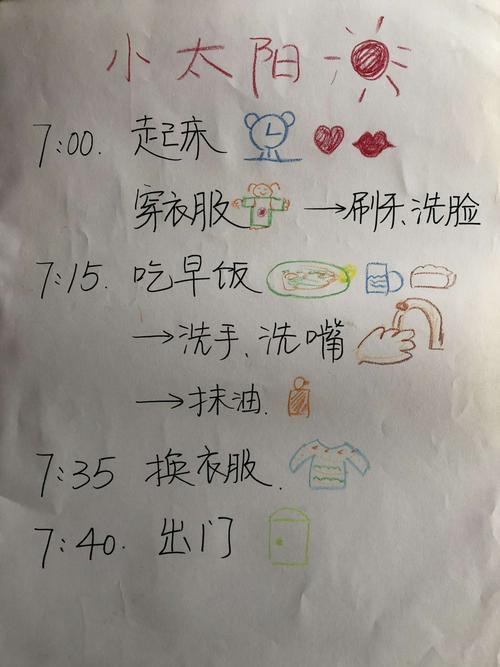 小太阳
7:00. 起床
穿衣服 →刷牙、洗脸
7:15. 吃早饭
→洗手、洗嘴
→抹油.
7:35 换衣服.
7:40. 出门